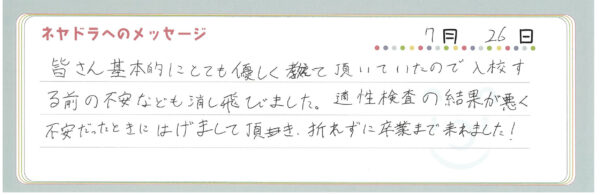 ネヤドラへのメッセージ
7月 26日
皆さん基本的にとても優しく教えて頂いていたので入校す
る前の不安なども消し飛びました。適性検査の結果が悪く
不安だったときにはげまして頂き、折れずに卒業まで来れました！